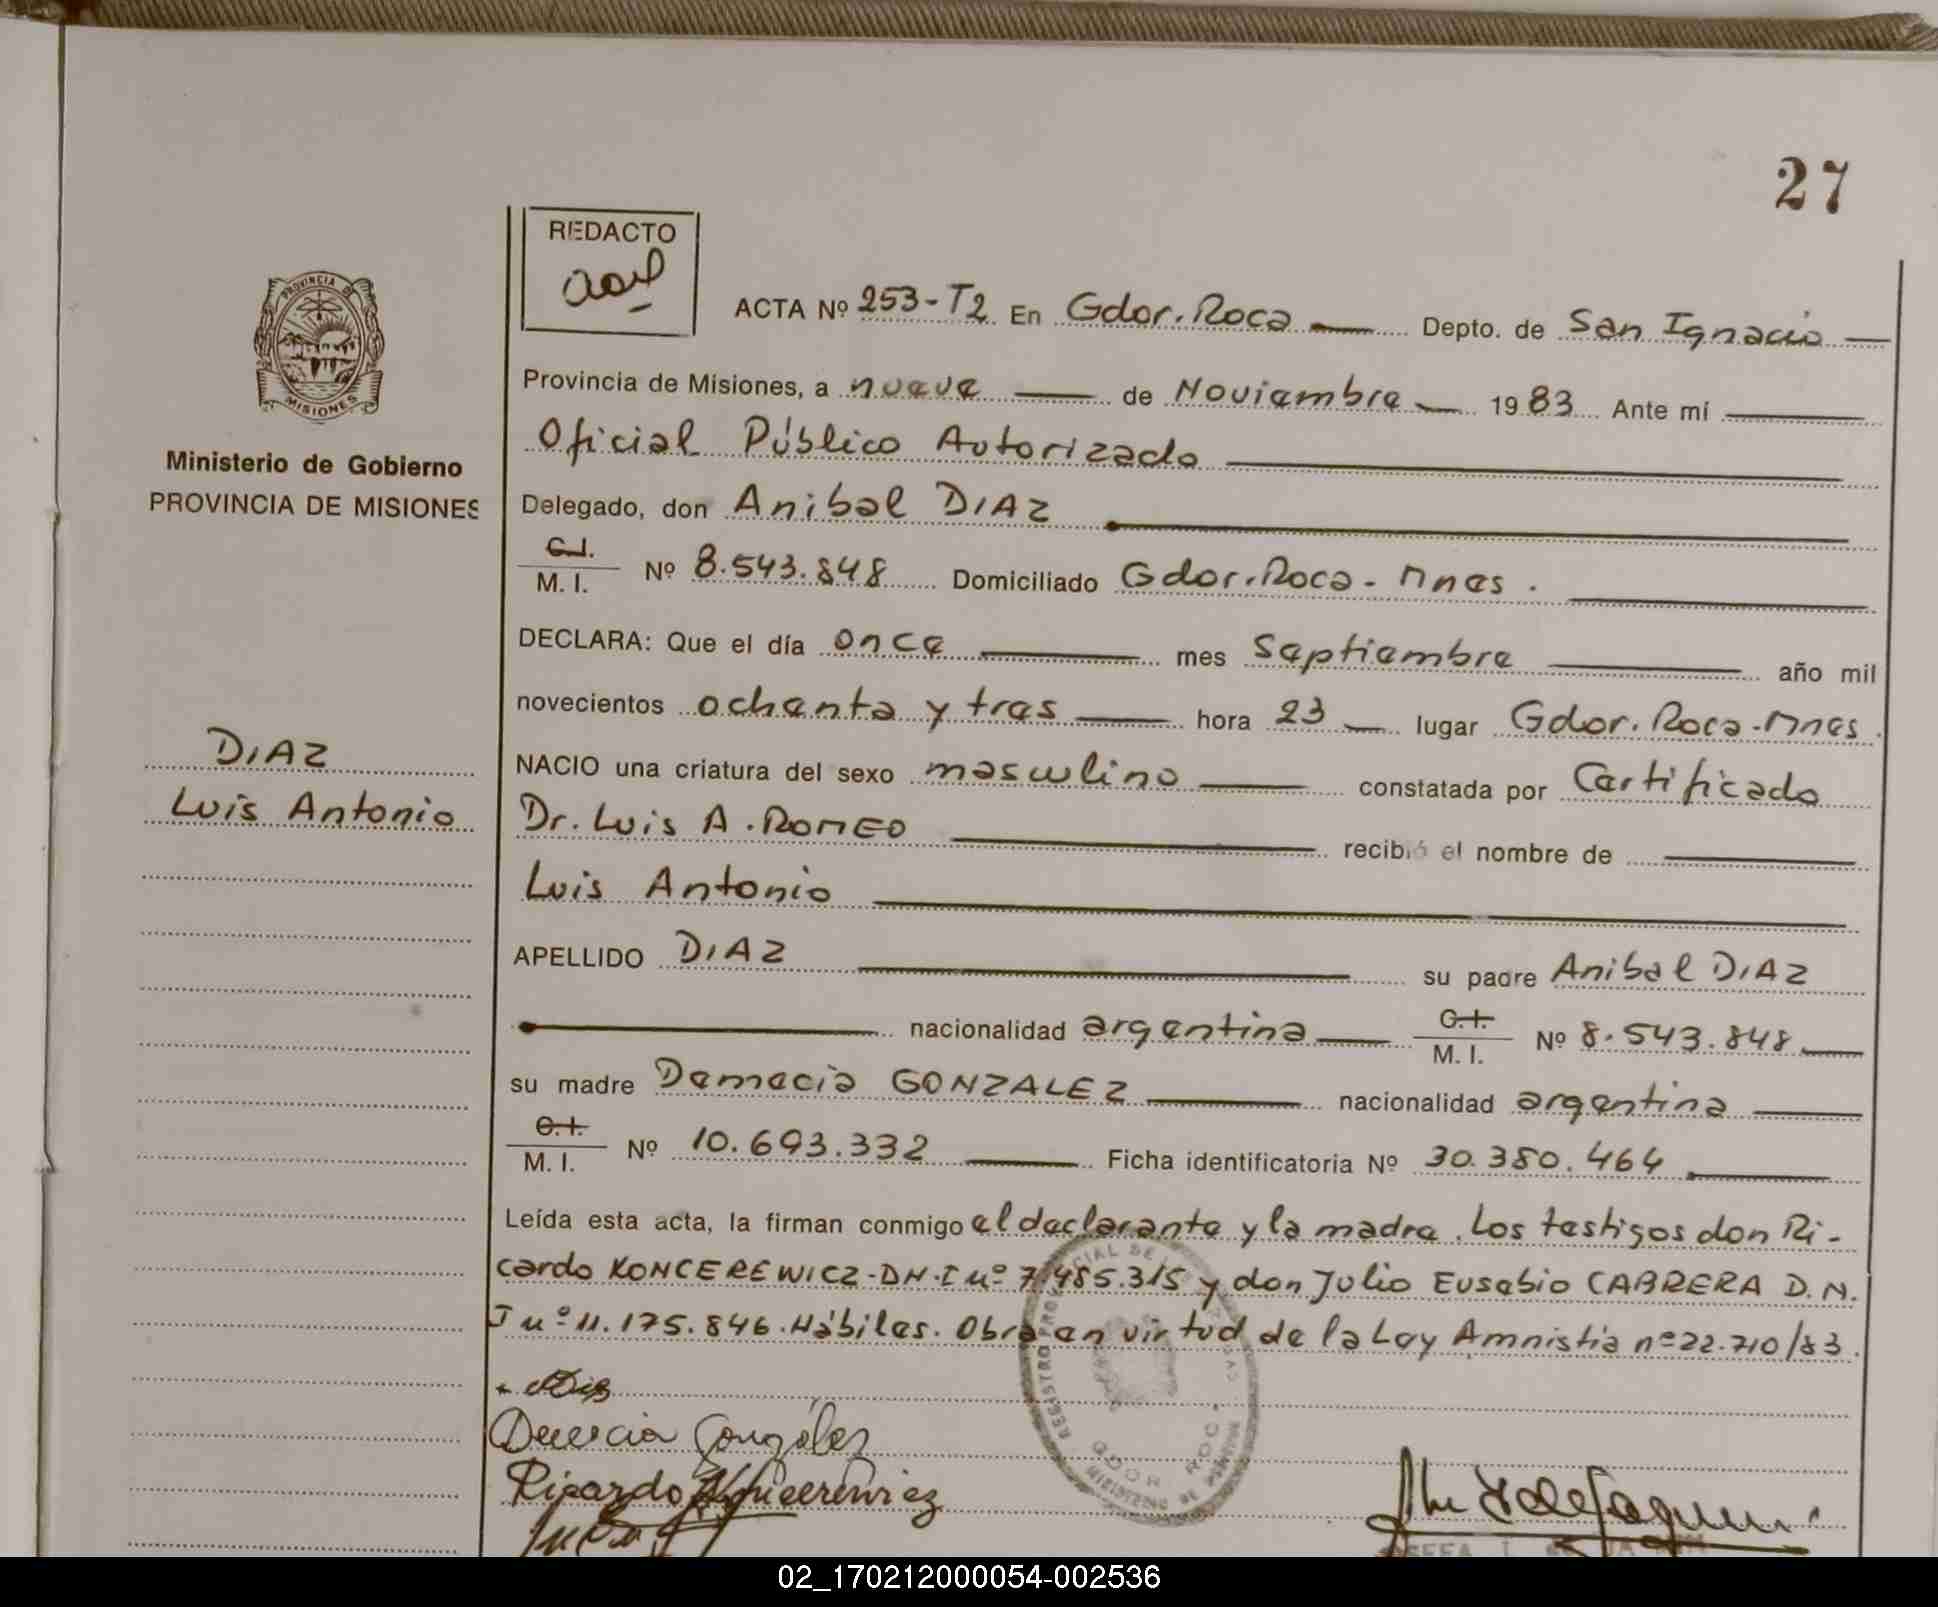 27
REDACTO
ACTA Nº 253-T2 En Gdor. Roca Depto. de San Ignacio
PROVINCIA DE
MISIONES
Provincia de Misiones, a nueve de Noviembre 1983 Ante mí
Oficial Público Autorizado
Ministerio de Gobierno
PROVINCIA DE MISIONES
Delegado, don Anibal DIAZ
C.I.
M. I. Nº 8.543.848 Domiciliado Gdor. Roca - Mnes.
DECLARA: Que el día once mes Septiembre año mil
novecientos ochenta y tres hora 23 lugar Gdor. Roca - Mnes.
DIAZ
Luis Antonio
NACIO una criatura del sexo masculino constatada por Certificado
Dr. Luis A. ROMEO recibió el nombre de
Luis Antonio
APELLIDO DIAZ su padre Anibal DIAZ
nacionalidad argentina C.I. M. I. Nº 8.543.848
su madre Demecia GONZALEZ nacionalidad argentina
C.I.
M. I. Nº 10.693.332 Ficha identificatoria Nº 30.380.464
Leída esta acta, la firman conmigo el declarante y la madre. Los testigos don Ri-
cardo KONCEREWICZ-DN.I nº 7.485.315 y don Julio Eusebio CABRERA D.N.
I nº 11.175.846. Hábiles. Obra en virtud de la Ley Amnistia nº 22.710/83.
González
Ricardo Koncerewicz
02_170212000054-002536